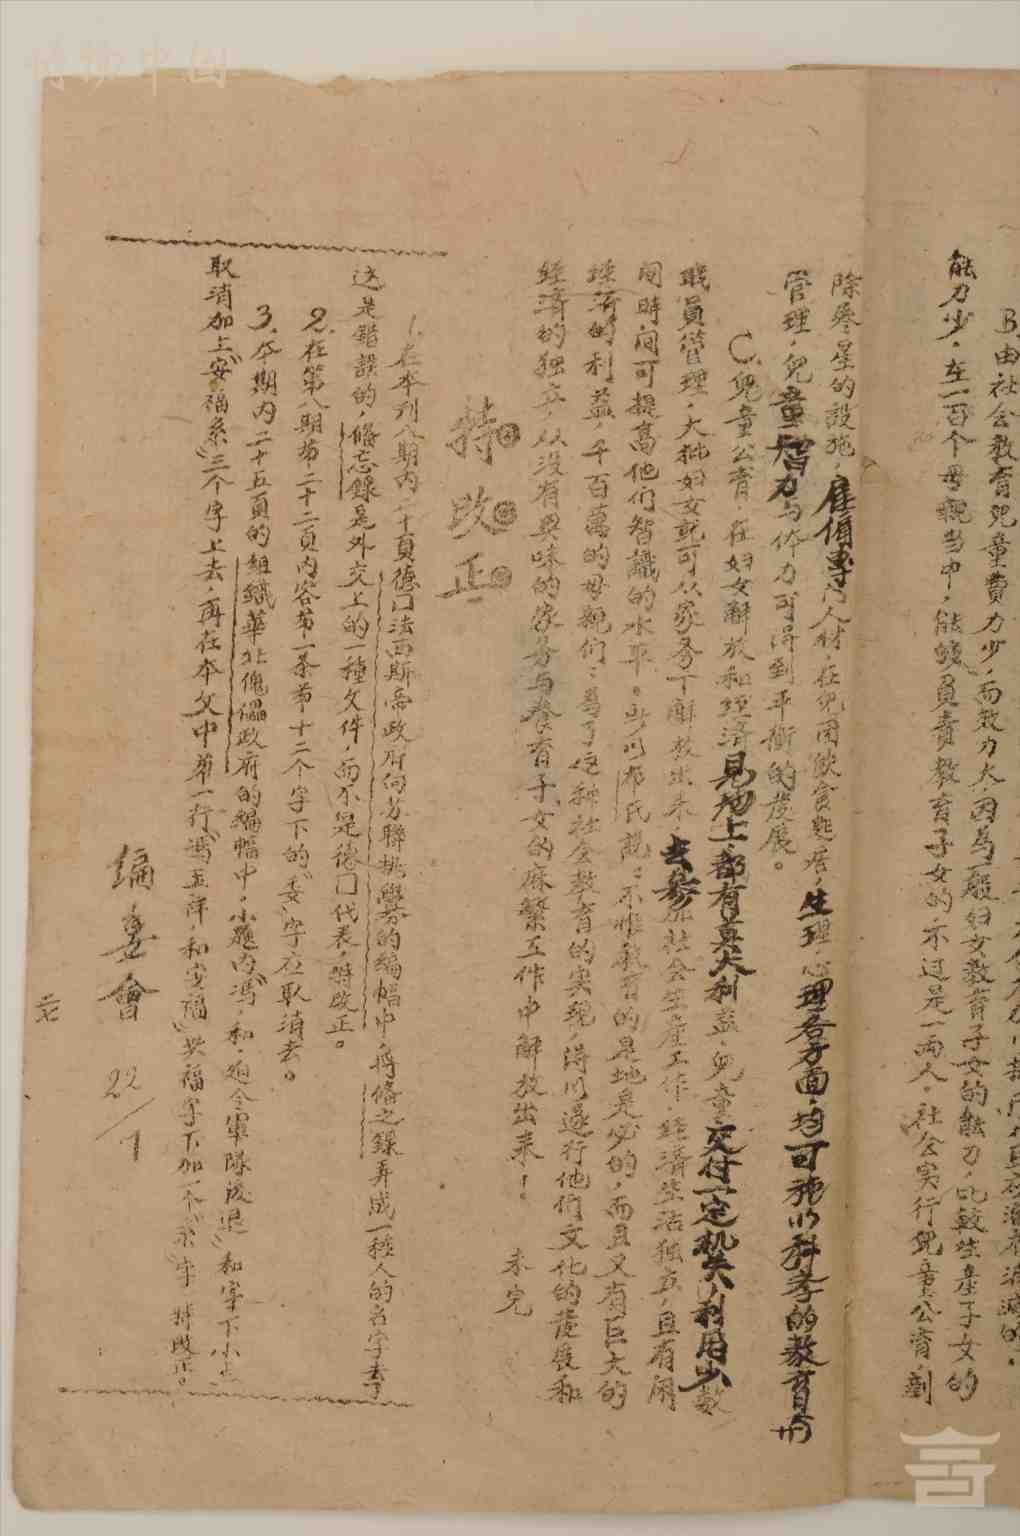 B.由社会教育児童費力少，而效力大，因為一般妇女教育子女的能力，比較生産子女的
能力少，在一百个母親当中，能够負責教育子女的，不过是一両人。社会实行児童公育，到
除参星的設施，雇傭專门人材，在児童飲食起居，生理，心理各方面，均可施以科孝的教育，
管理，児童智力与体力可得到平衡的发展。
C.児童公育，在妇女解放和经済見地上，都有莫大利益，児童交付一定机关，利用少数
职員管理，大批妇女就可从家务下解放出来，去参加社会生產工作，经濟生活独立，且有閑
间時间可提高他们智識的水平。所以布氏説：不惟教育的是地是必的，而且又有巨大的
経済的利益，千百萬的母親们：為了这种社会教育的实現，得以遂行他们文化的發展和
经済的独立，从没有興味的家务与養育子女的麻繁工作中解放出来！ 未完
特改正
1.在本刋八期内一十頁德门法西斯帝政府向苏聯挑舋的编幅中，将俻忘録弄成一種人的名字去了
这是錯誤的，俻忘録是外交上的一種文件，而不是德门代表，特改正。
2.在第八期苐二十二頁内容苐一条苐十二个字下的“委”字应取消去。
3.本期内二十五頁的組織華北傀儡政府的編幅中，小題内“馮”和“迫令軍隊後退”和字下小点
取消加上“安福系”三个字上去，再在本文中苐一行“馮玉萍，和安福”共福字下加一个“系”字 特改正。
編委會 22/7
二七